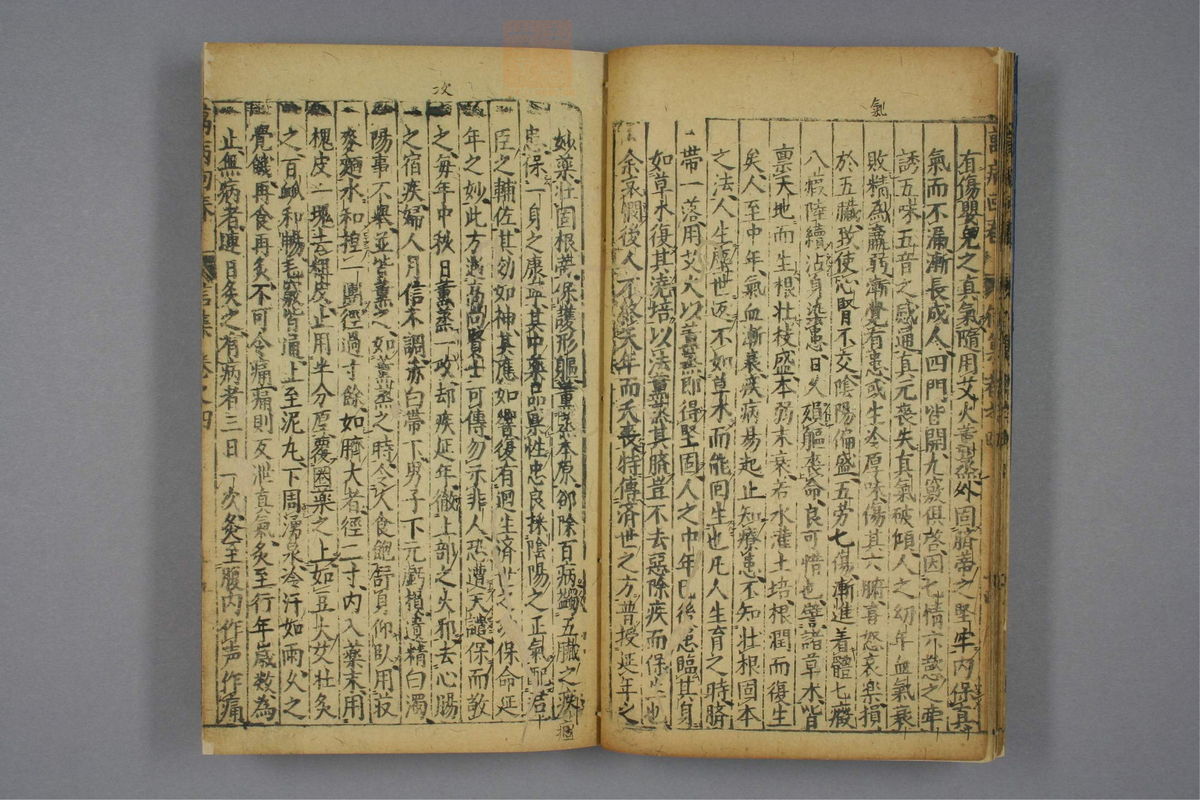 氣
有傷嬰兒之真氣隨用艾火薰蒸外固臍蒂之堅牢內保真
氣而不漏漸長成人四門皆開九竅俱啓因七情六慾之牽
誘五味五音之感通真元喪失真氣破傾人之幼年血氣衰
敗精爲羸弱漸覺有患或生冷厚味傷其六腑喜怒哀樂損
於五臟致使心腎不交陰陽偏盛五劳七傷漸進着體七癥
八瘕陸續沾身染患日久殞軀喪命良可惜也譬諸草木皆
禀天地而生根壮枝盛本弱末衰若水灌土培根潤而復生
矣人至中年氣血漸衰疾病易起止知療患不知壮根固本
之法人生處世返不如草木而能回生也凡人生育之時臍
帶一落用艾火以薰蒸即得堅固人之中年已後患臨其身
如草木復其澆培以法薰蒸其臍豈不去惡除疾而保生也
余哀憫後人不終天年而夭喪特傳済世之方普授延年之
次
妙藥壮固根蒂保護形軀薰蒸本原却除百病蠲五臟之疾
患保一身之康其中藥品果性忠良採陰陽之正氣配合
臣之輔佐其効如神其應如響復有迴生済世之保命延
年之妙此方遇高賢士可傳勿示非人恐遭天譴保而敬
之每年中秋日薰蒸一次却疾延年徹上部之火邪去心腸
之宿疾婦人月信不調赤白帶下男子下元虧損遺精白濁
陽事不舉並皆薰之如薰蒸之時令人食飽舒身仰臥用莜
麥麵水和揑一團徑過寸餘如臍大者徑二寸內入藥末用
槐皮一塊去粗皮止用半分厚覆圈藥之上如豆大艾壮灸
之百脉和暢毛竅皆通上至泥丸下周湧泉冷汗如雨久之
覺餓再食再灸不可令痛痛則反泄真氣灸至行年歳数為
止無病者連日灸之有病者三日一次灸至腹內作声作痛